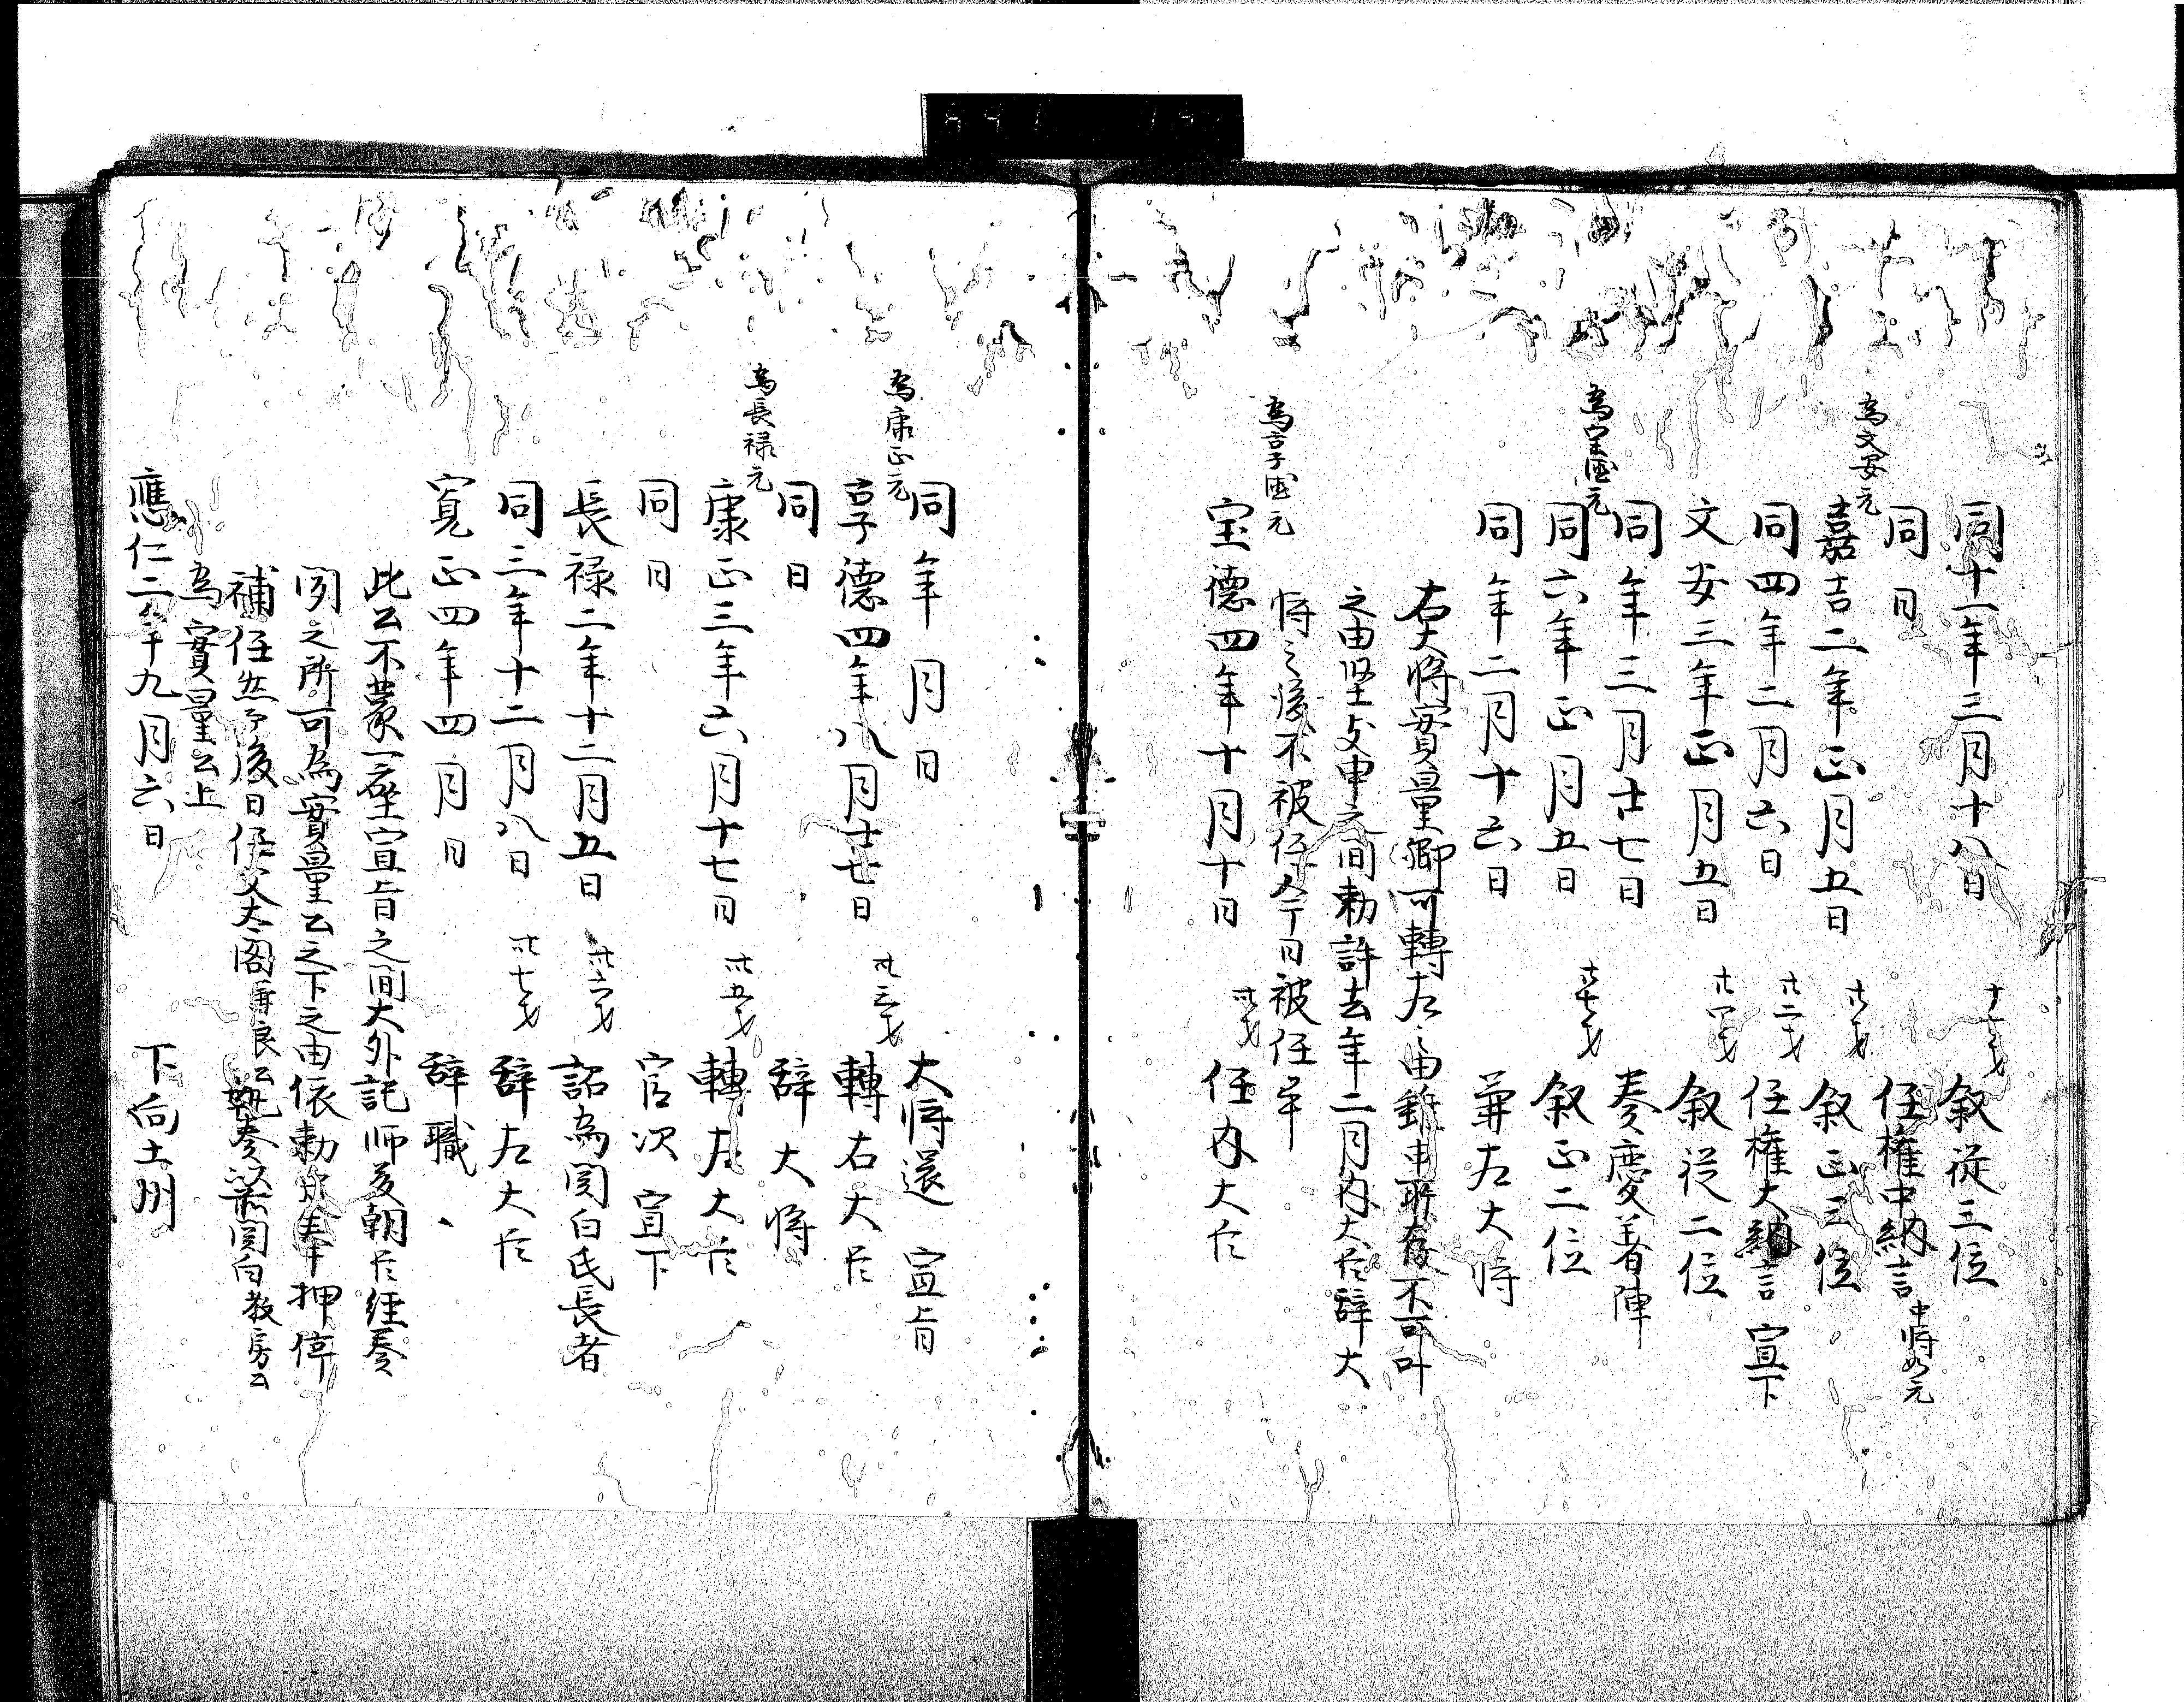 同十一年三月十八日　叙従三位
同日　任権中納言 中将如元
為文安元
嘉吉二年正月五日　叙正三位
同四年二月六日　任権大納言　宣下
文安三年正月五日　叙従二位
同年三月廿七日　奏慶着陣
為宝徳元
同六年正月五日　叙正二位
同年二月十六日　兼左大将
右大将實量卿可轉左之由雖申所存不可叶
之由堅被申之間勅許去年二月内大臣辞大
将之後不被任今日被任畢
為享徳元
宝徳四年十月十日　任内大臣
同年月日　大将還　宣旨
為康正元
享徳四年八月廿七日　卅三才　轉右大臣
同日　辞大将
為長禄元
康正三年六月十七日　卅五才　轉左大臣
同日　官次　宣下
長禄二年十二月五日　卅六才　詔為関白氏長者
同三年十二月八日　卅七才　辞左大臣
寛正四年四月日　辞職
此公不蒙一座宣旨之間大外記師茂朝臣経奏
聞之所可為實量公之下之由依勅
押停
補任然而後日任父太閤
執奏
前関白教房公
為實量公上
應仁二年九月六日　下向土州